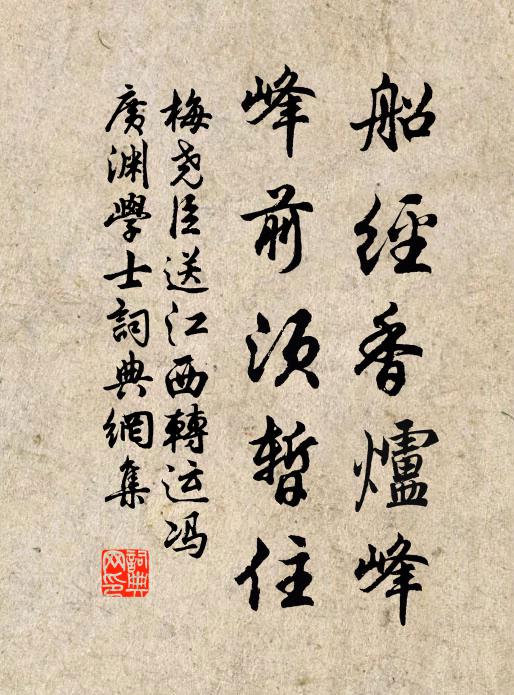 船經香爐峰
峰前須暫住
梅堯臣送江西轉运冯
廣渊學士詞典網集
詞典网印